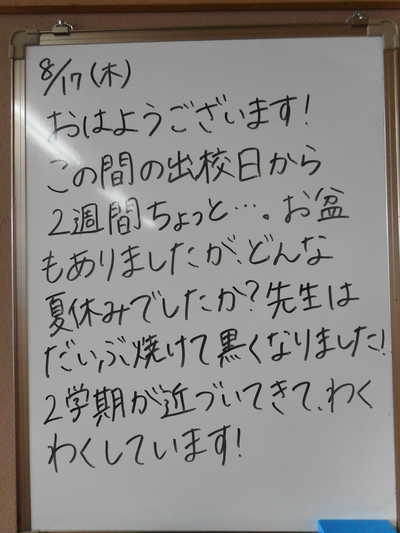 8/17(木)
おはようございます!
この間の出校日から
2週間ちょっと…。お盆
もありましたが、どんな
夏休みでしたか?先生は
だいぶ焼けて黒くなりました!
2学期が近づいてきて、わく
わくしています!